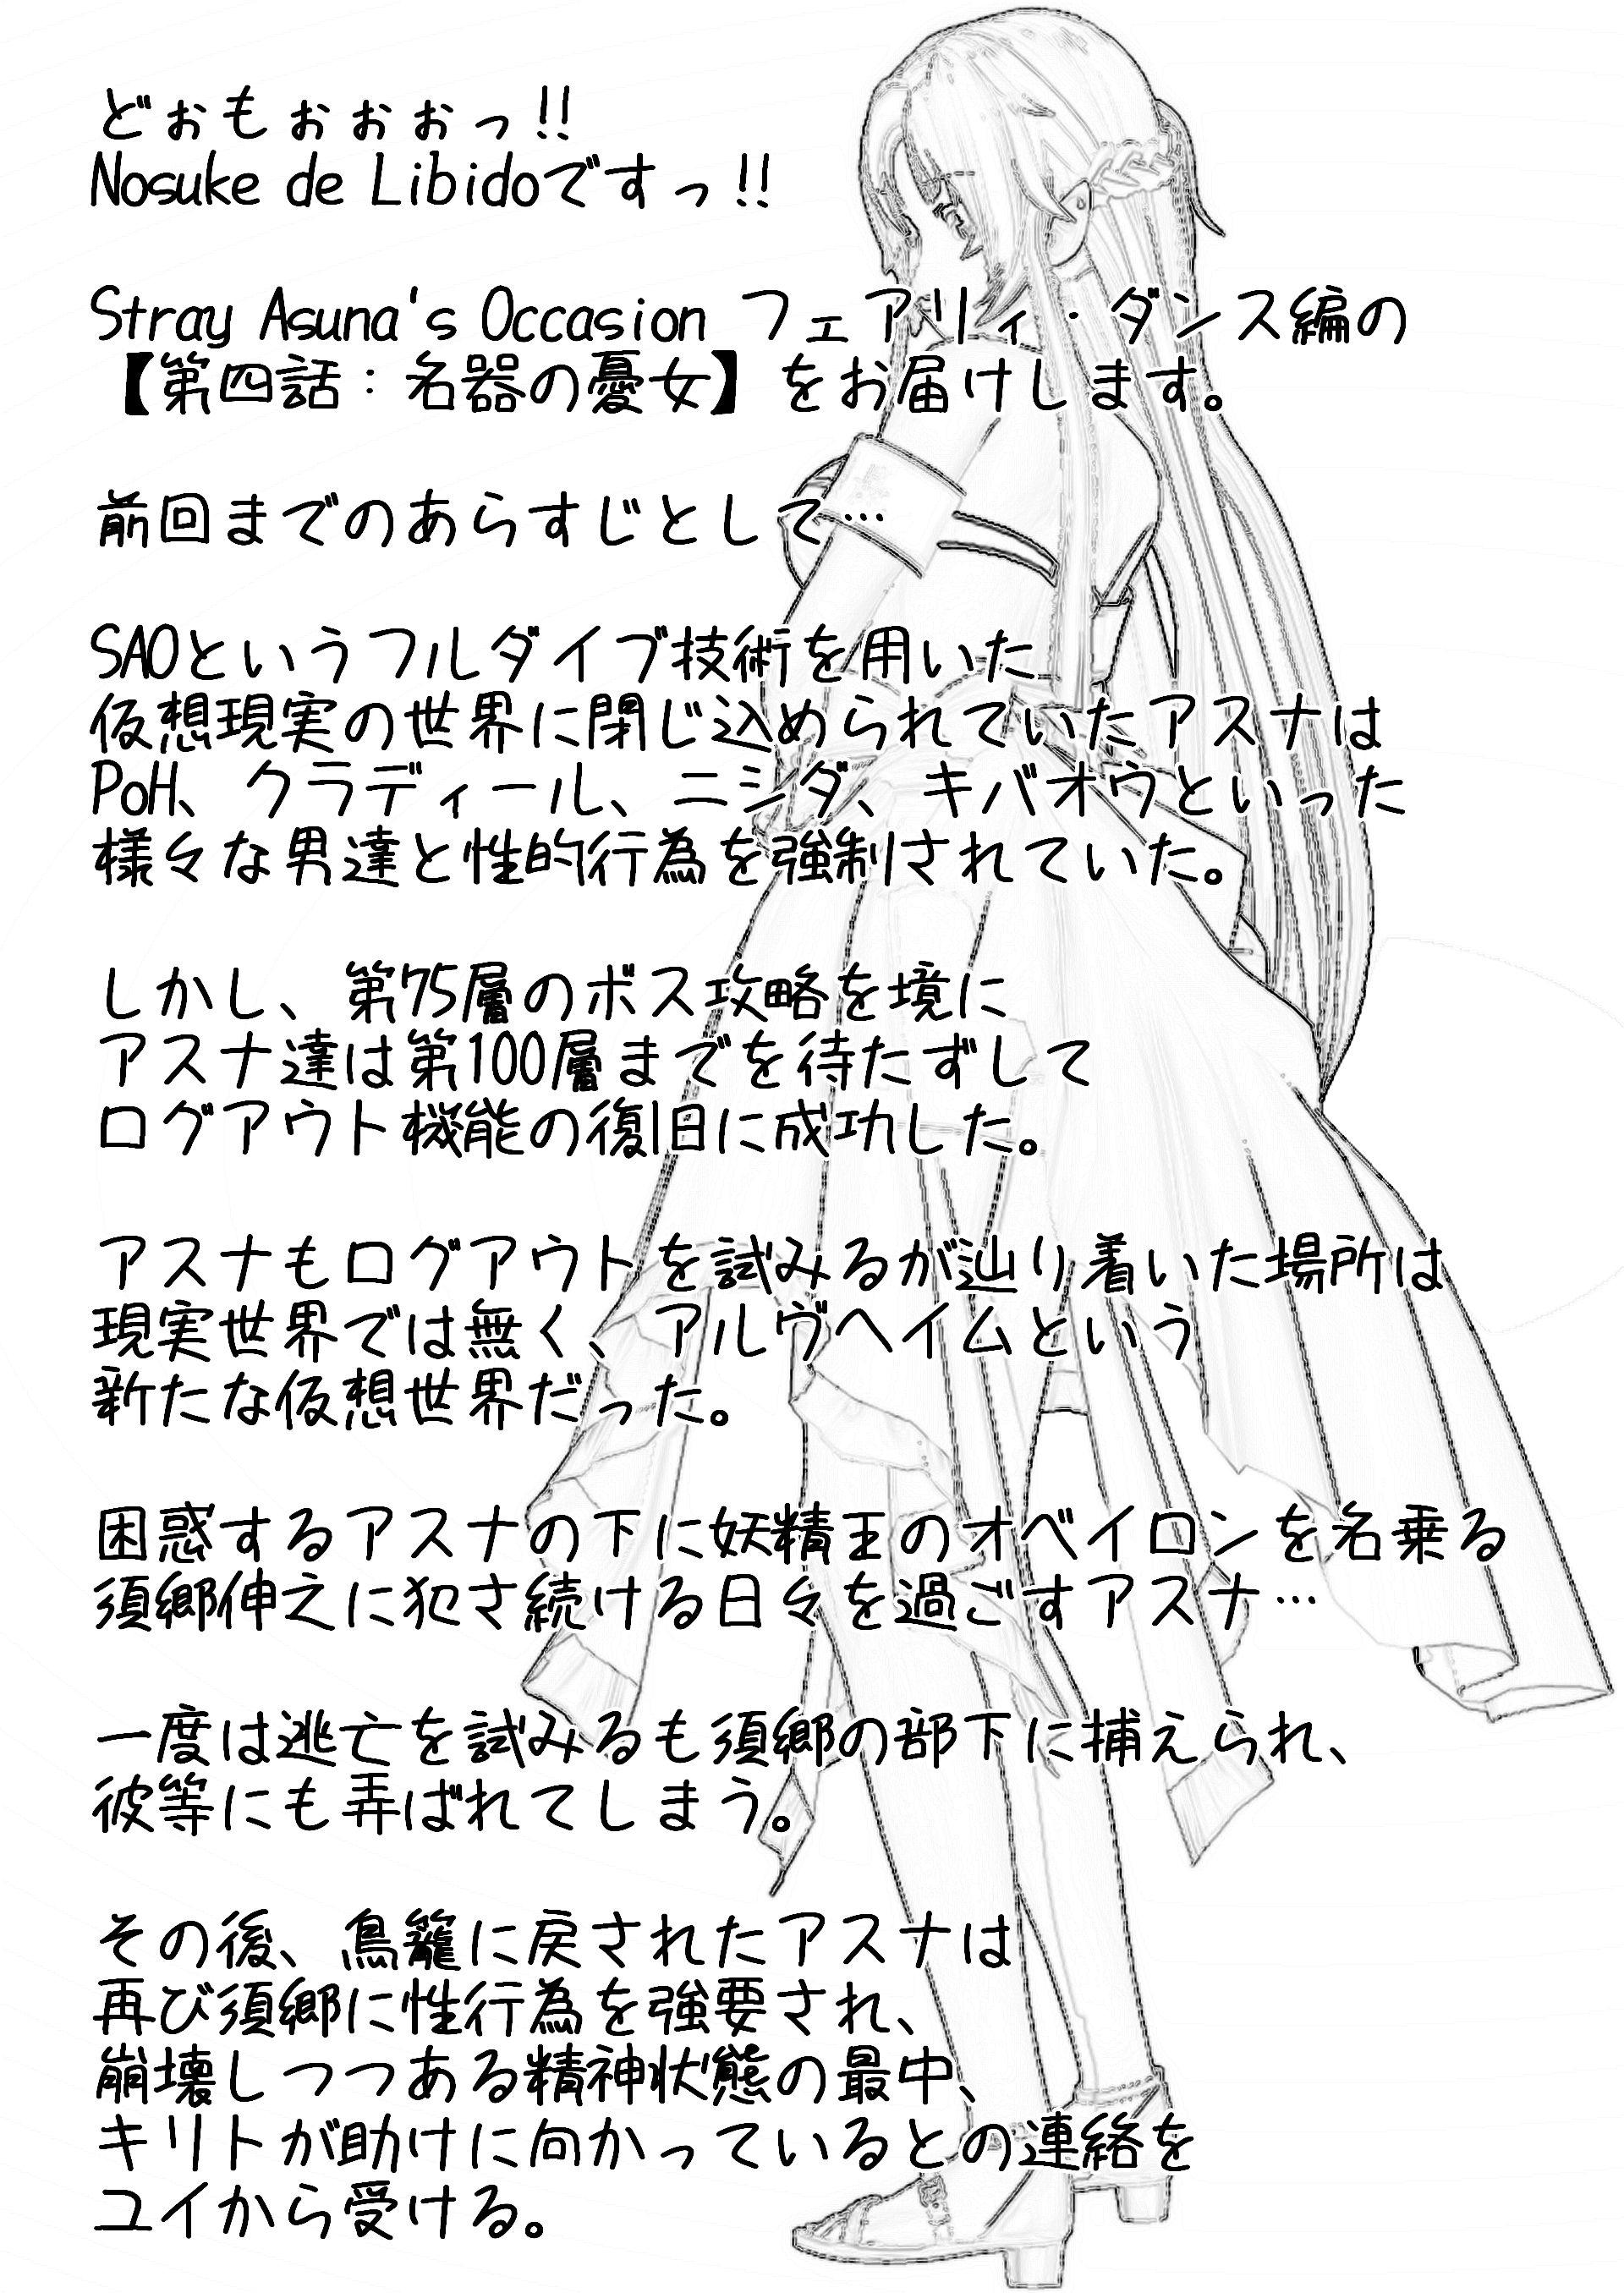 どぉもぉぉぉっ!!
Nosuke de Libidoですっ!!
Stray Asuna's Occasion フェアリィ・ダンス編の
【第四話：名器の憂女】をお届けします。
前回までのあらすじとして…
SAOというフルダイブ技術を用いた
仮想現実の世界に閉じ込められていたアスナは
PoH、クラディール、ニシダ、キバオウといった
様々な男達と性的行為を強制されていた。
しかし、第75層のボス攻略を境に
アスナ達は第100層までを待たずして
ログアウト機能の復旧に成功した。
アスナもログアウトを試みるが辿り着いた場所は
現実世界では無く、アルヴヘイムという
新たな仮想世界だった。
困惑するアスナの下に妖精王のオベイロンを名乗る
須郷伸之に犯さ続ける日々を過ごすアスナ…
一度は逃亡を試みるも須郷の部下に捕えられ、
彼等にも弄ばれてしまう。
その後、鳥籠に戻されたアスナは
再び須郷に性行為を強要され、
崩壊しつつある精神状態の最中、
キリトが助けに向かっているとの連絡を
ユイから受ける。